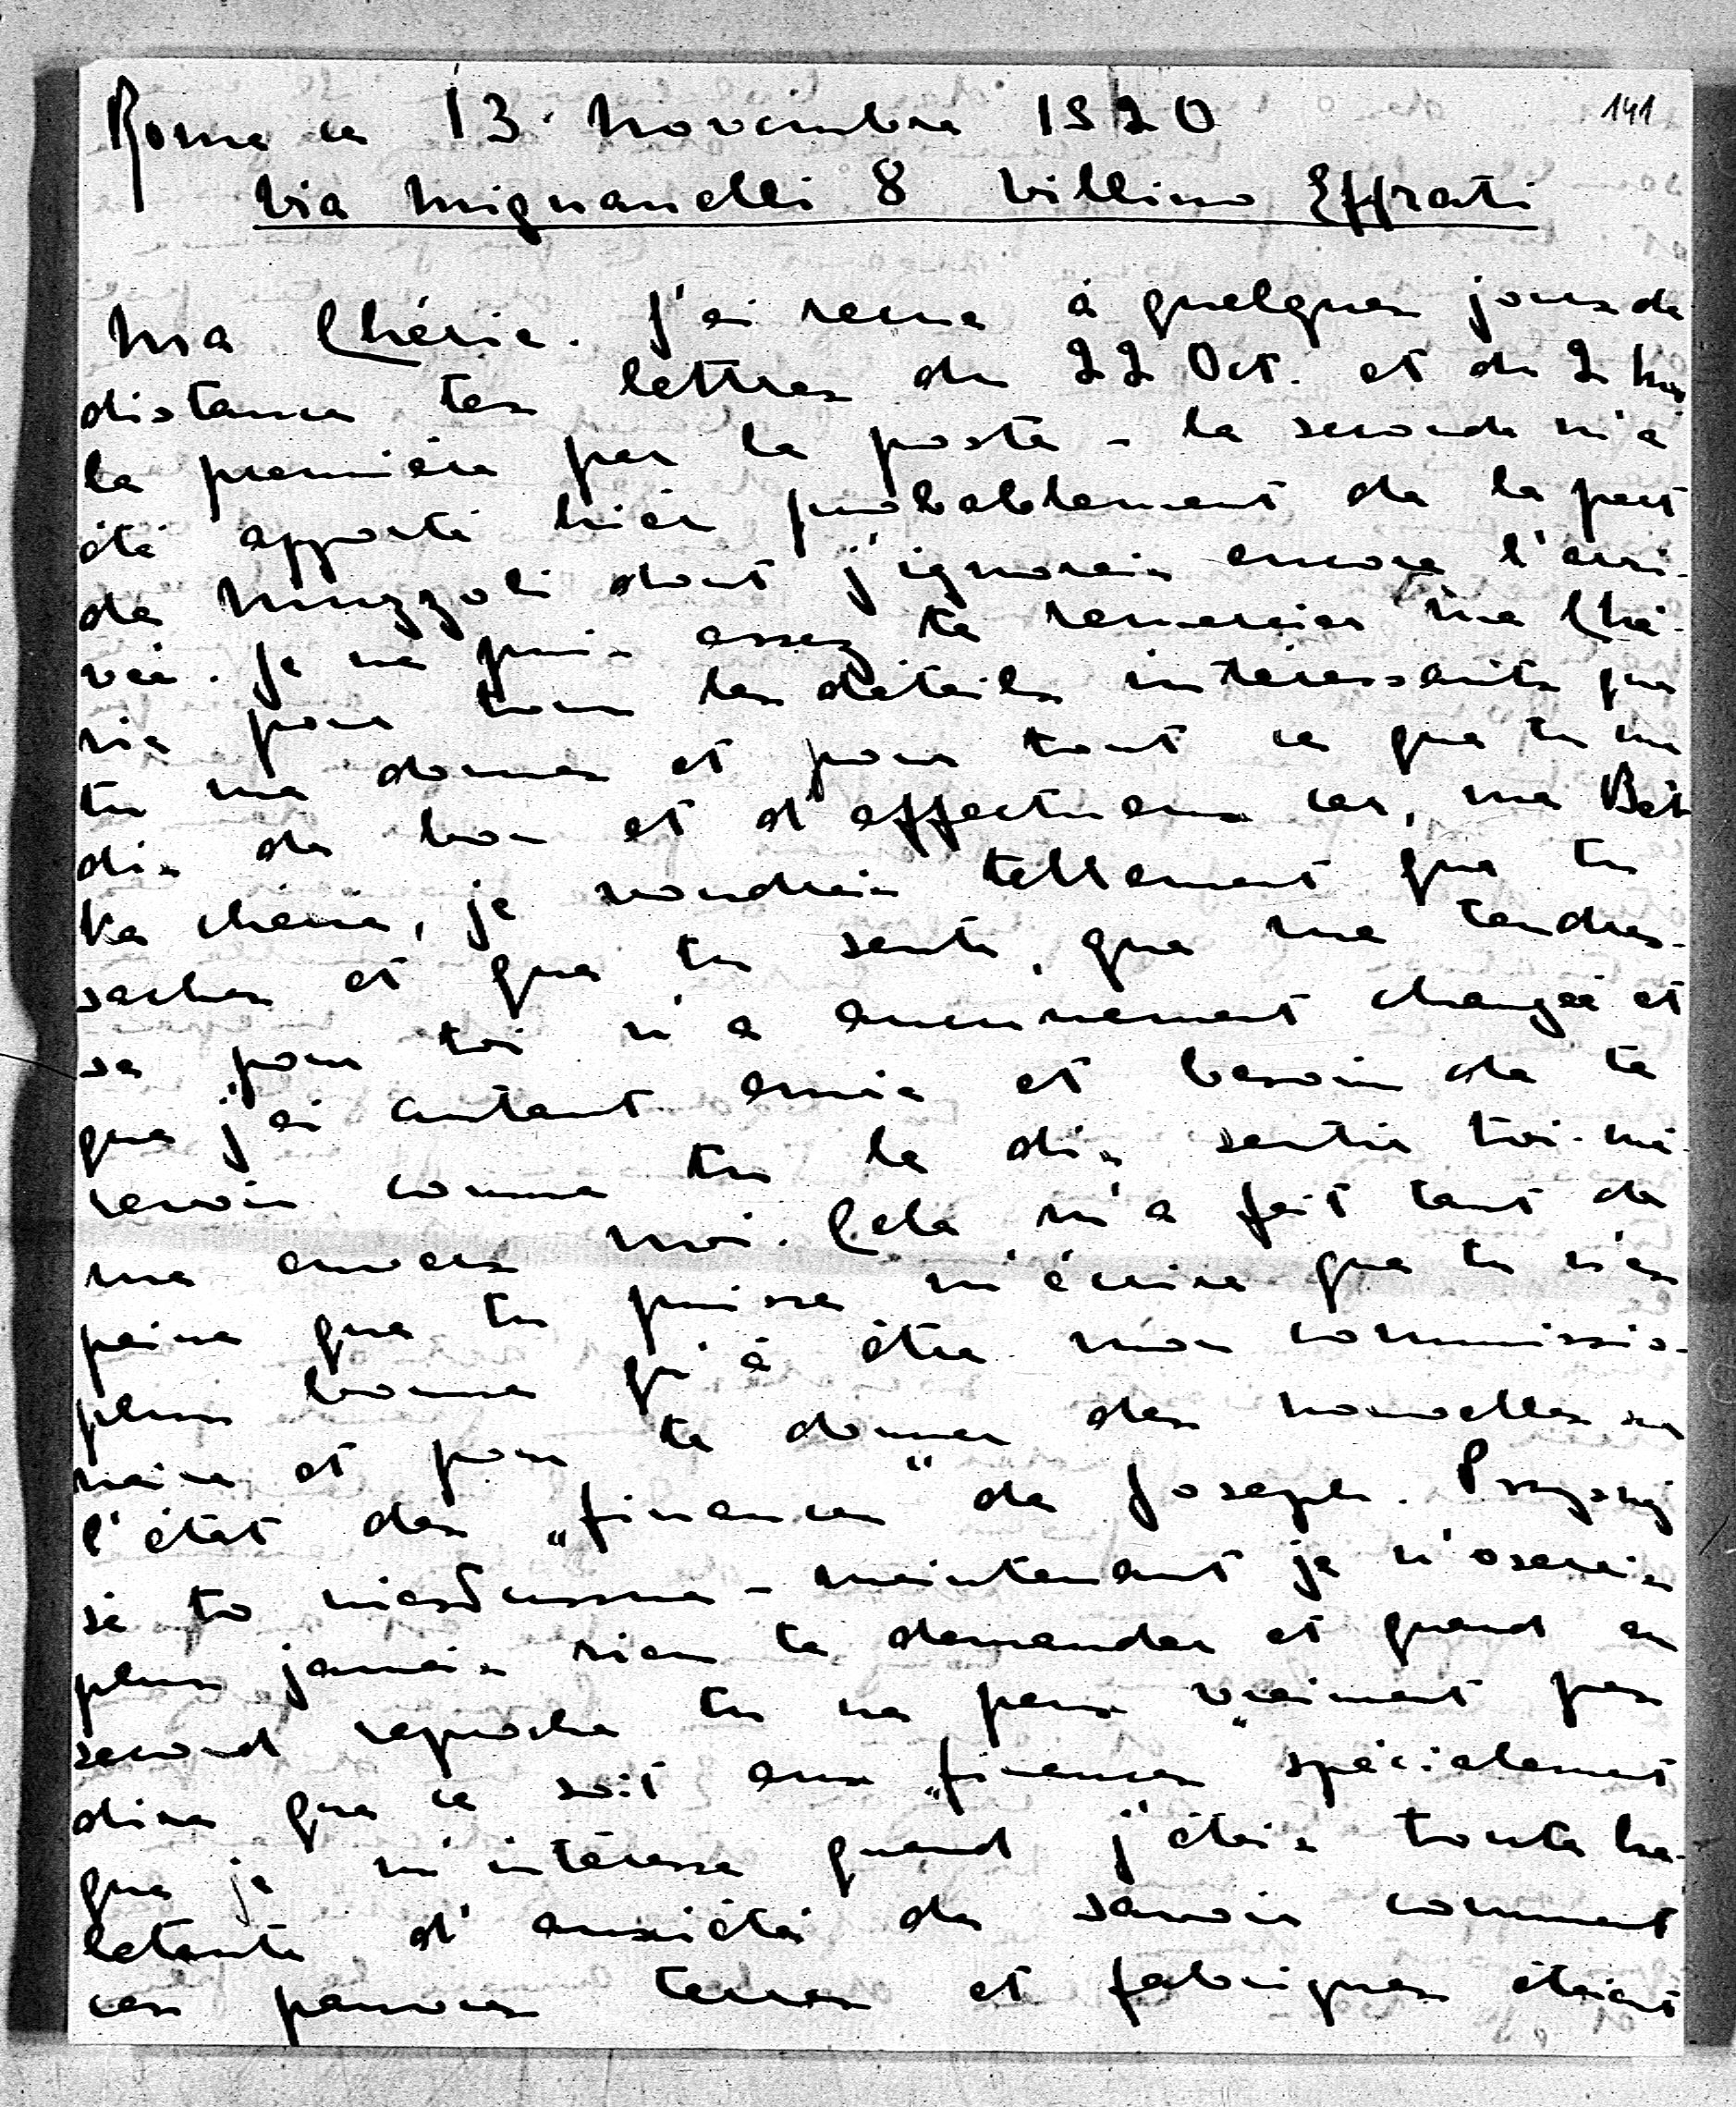 141
Rome ce 13 Novembre 1920
Via Mignanelli 8 Villino Effrati
Ma Chérie. J'ai recue à quelques jours de
distance tes lettres du 22 Oct. et du 2 Nov
la première par la poste - la seconde m'a
été apporté hier probablement de la part
de Muzzoli dont j'ignorais encore l'arri-
vée. Je ne puis assez te remercier ma Ché-
rie pour tous les détails intéressants que
tu me donnes et pour tout ce que tu me
dis de bon et d'affectueux car, ma Bet
ka chérie, je voudrais tellement que tu
saches et que tu sente, que ma tendres-
se pour toi n'a aucunement changée et
que j'ai autant envie et besoin de te
revoir comme tu le dis sentir toi-mê-
me envers moi. Cela m'a fait tant de
peine que tu puisse m'écrire que tu n'es
plus bonne qu'à être mon commissio-
naire et pour te donner des nouvelles sur
l'état des „finances" de Joseph. Przyznaj
że to niesłuszne - maintenant je n'oserais
plus jamais rien te demander et quand au
second reproche tu ne peux vraiment pas
dire que ce soit aux „finances" spécialement
que je m'intéresse quand j'étais toute ha-
letante d'anxiété de savoir comment
ces pauvres terres et fabriques étaient